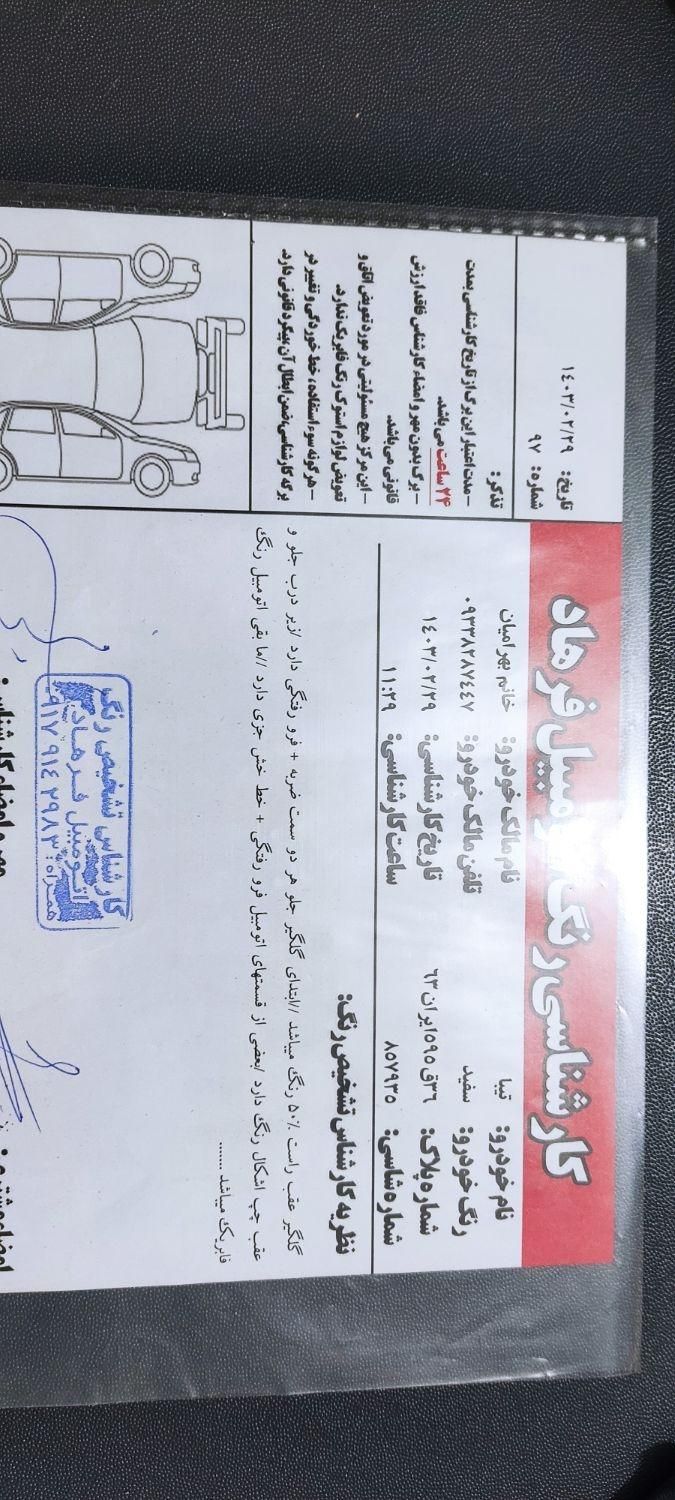 کارشناسی رنگ اتومبیل فرهاد
تاریخ: ۱۴۰۳/۰۲/۲۹
شماره: ۹۷
نام خودرو: تیبا
نام مالک خودرو: خانم بهرامیان
رنگ خودرو: سفید
تلفن مالک خودرو: ۰۹۳۳۸۲۸۷۴۴۷
شماره پلاک: ۳۶ق۵۹۵ایران ۶۳
تاریخ کارشناسی: ۱۴۰۳/۰۲/۲۹
شماره شاسی: ۸۵۷۹۳۵
ساعت کارشناسی: ۱۱:۲۹
تذکر:
-مدت اعتبار این برگ از تاریخ کارشناسی بمدت
۲۴ ساعت می باشد.
- برگ بدون مهر و امضاء کارشناس فاقد ارزش
قانونی می باشد.
- این مرکز هیچ مسئولیتی در مورد تعویض اتاق و
تعویض لوازم استوک رنگ فابریک ندارد.
- هرگونه سوء استفاده، خط خوردگی و تغییر در
برگه کارشناسی، ضمن ابطال آن پیگرد قانونی دارد.
نظریه کارشناس تشخیص رنگ:
گلگیر عقب راست ۵۰٪ رنگ میباشد //ابتدای گلگیر جلو هر دو سمت ضربه + فرو رفتگی دارد /زیر درب جلو و
عقب چپ اشکال رنگ دارد /بعضی از قسمتهای اتومبیل فرو رفتگی + خط خش جزی دارد //ما بقی اتومبیل رنگ
فابریک میباشد ......
کارشناس تشخیص رنگ
اتومبیل فرهاد
همراه: ۰۹۱۷۹۱۴۲۹۸۳